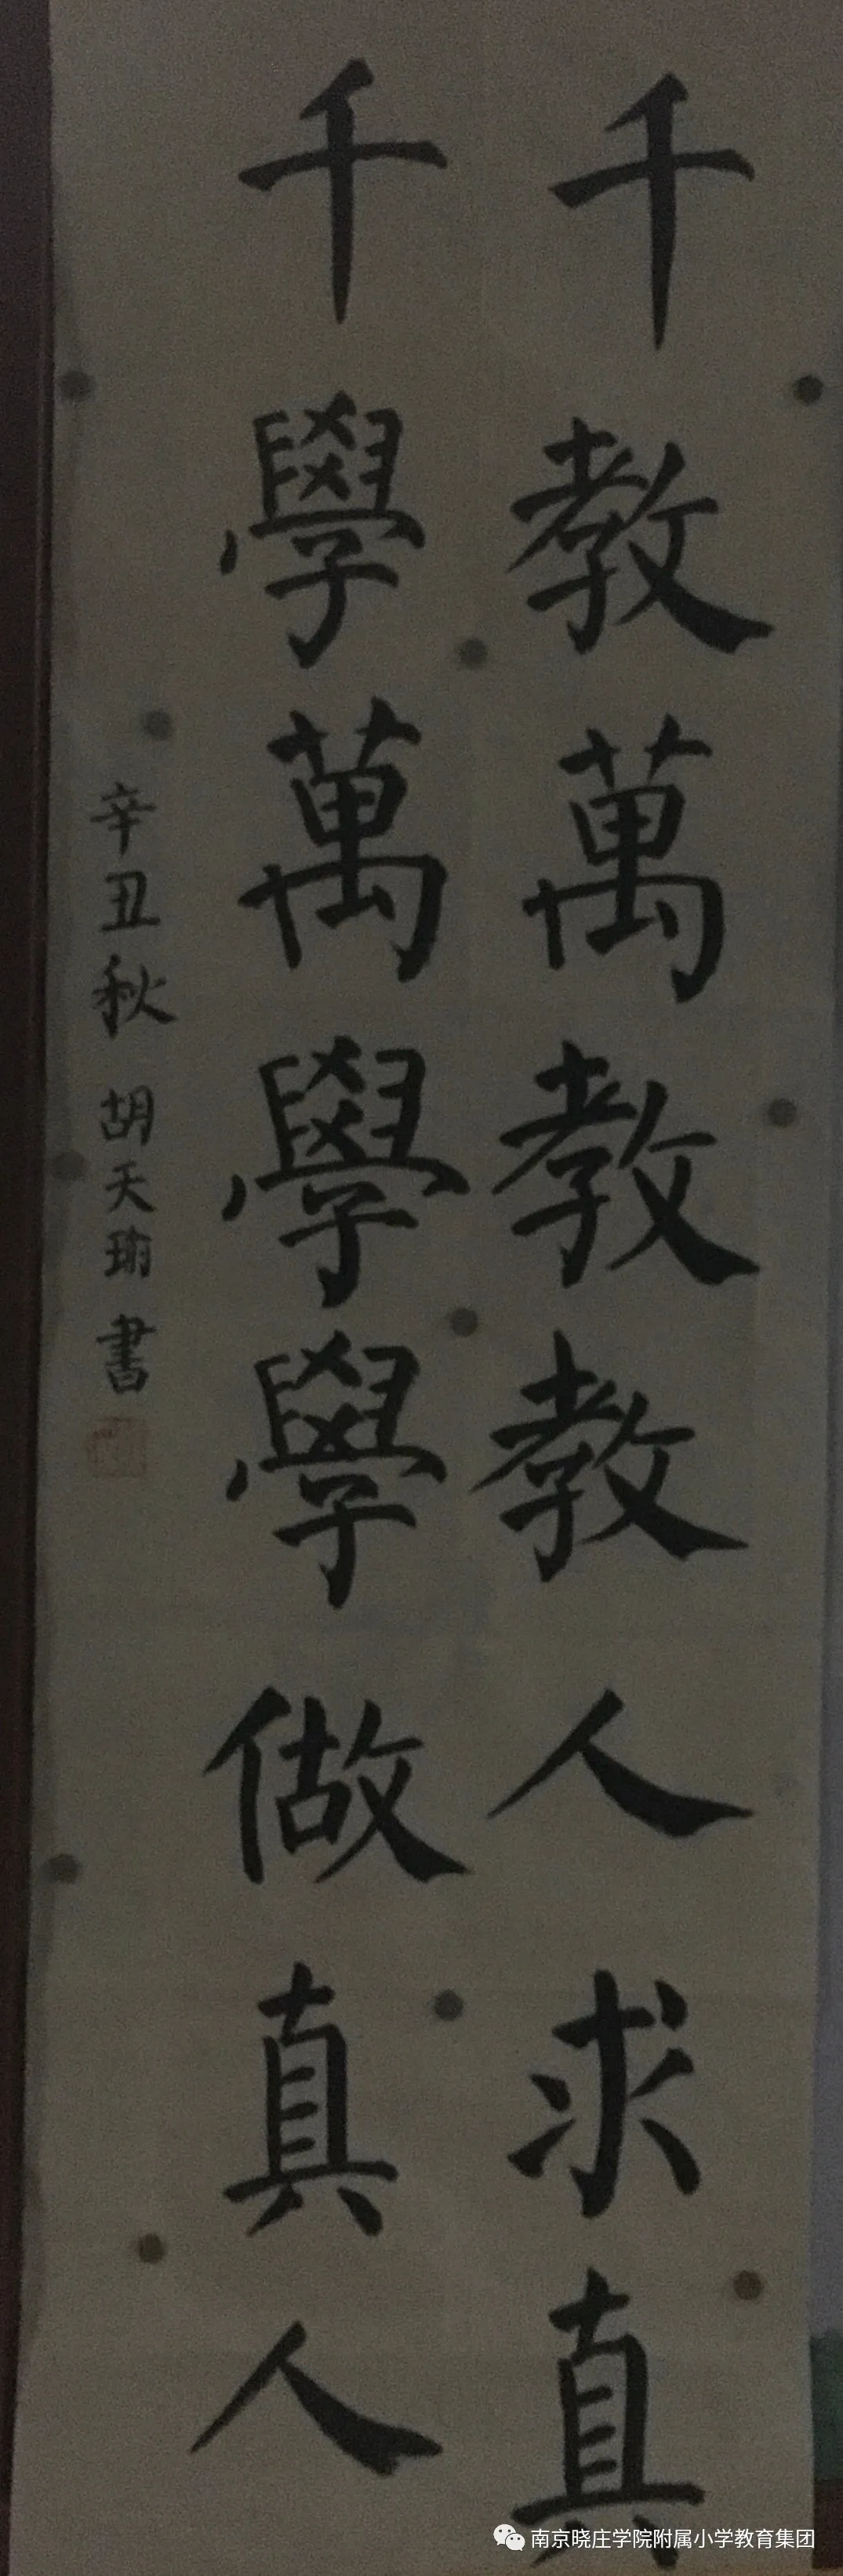 千教萬教教人求真
千學萬學學做真人
辛丑秋 胡天瑜 書
南京晓庄学院附属小学教育集团